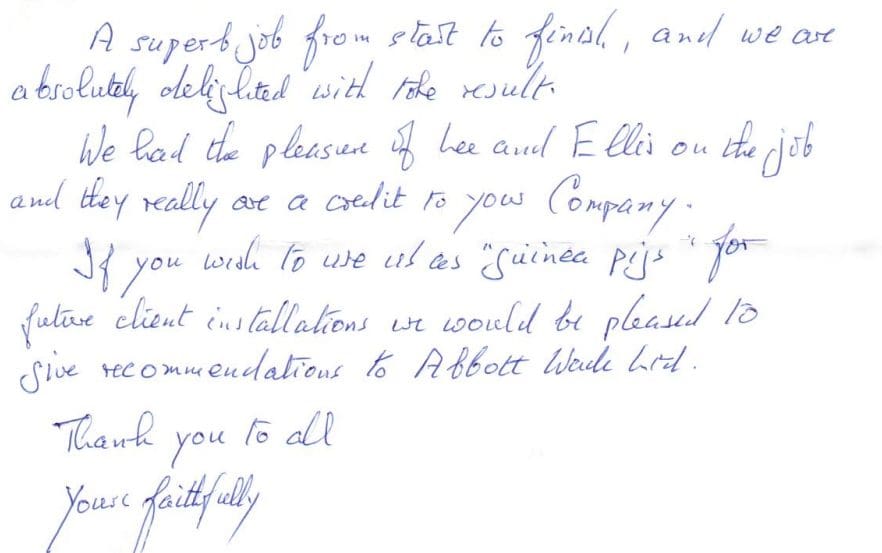 A superb job from start to finish, and we are
absolutely delighted with the result.
We had the pleasure of Lee and Ellis on the job
and they really are a credit to your Company.
If you wish to use us as "guinea pigs" for
future client installations we would be pleased to
give recommendations to Abbott Wade Ltd.
Thank you to all
Yours faithfully